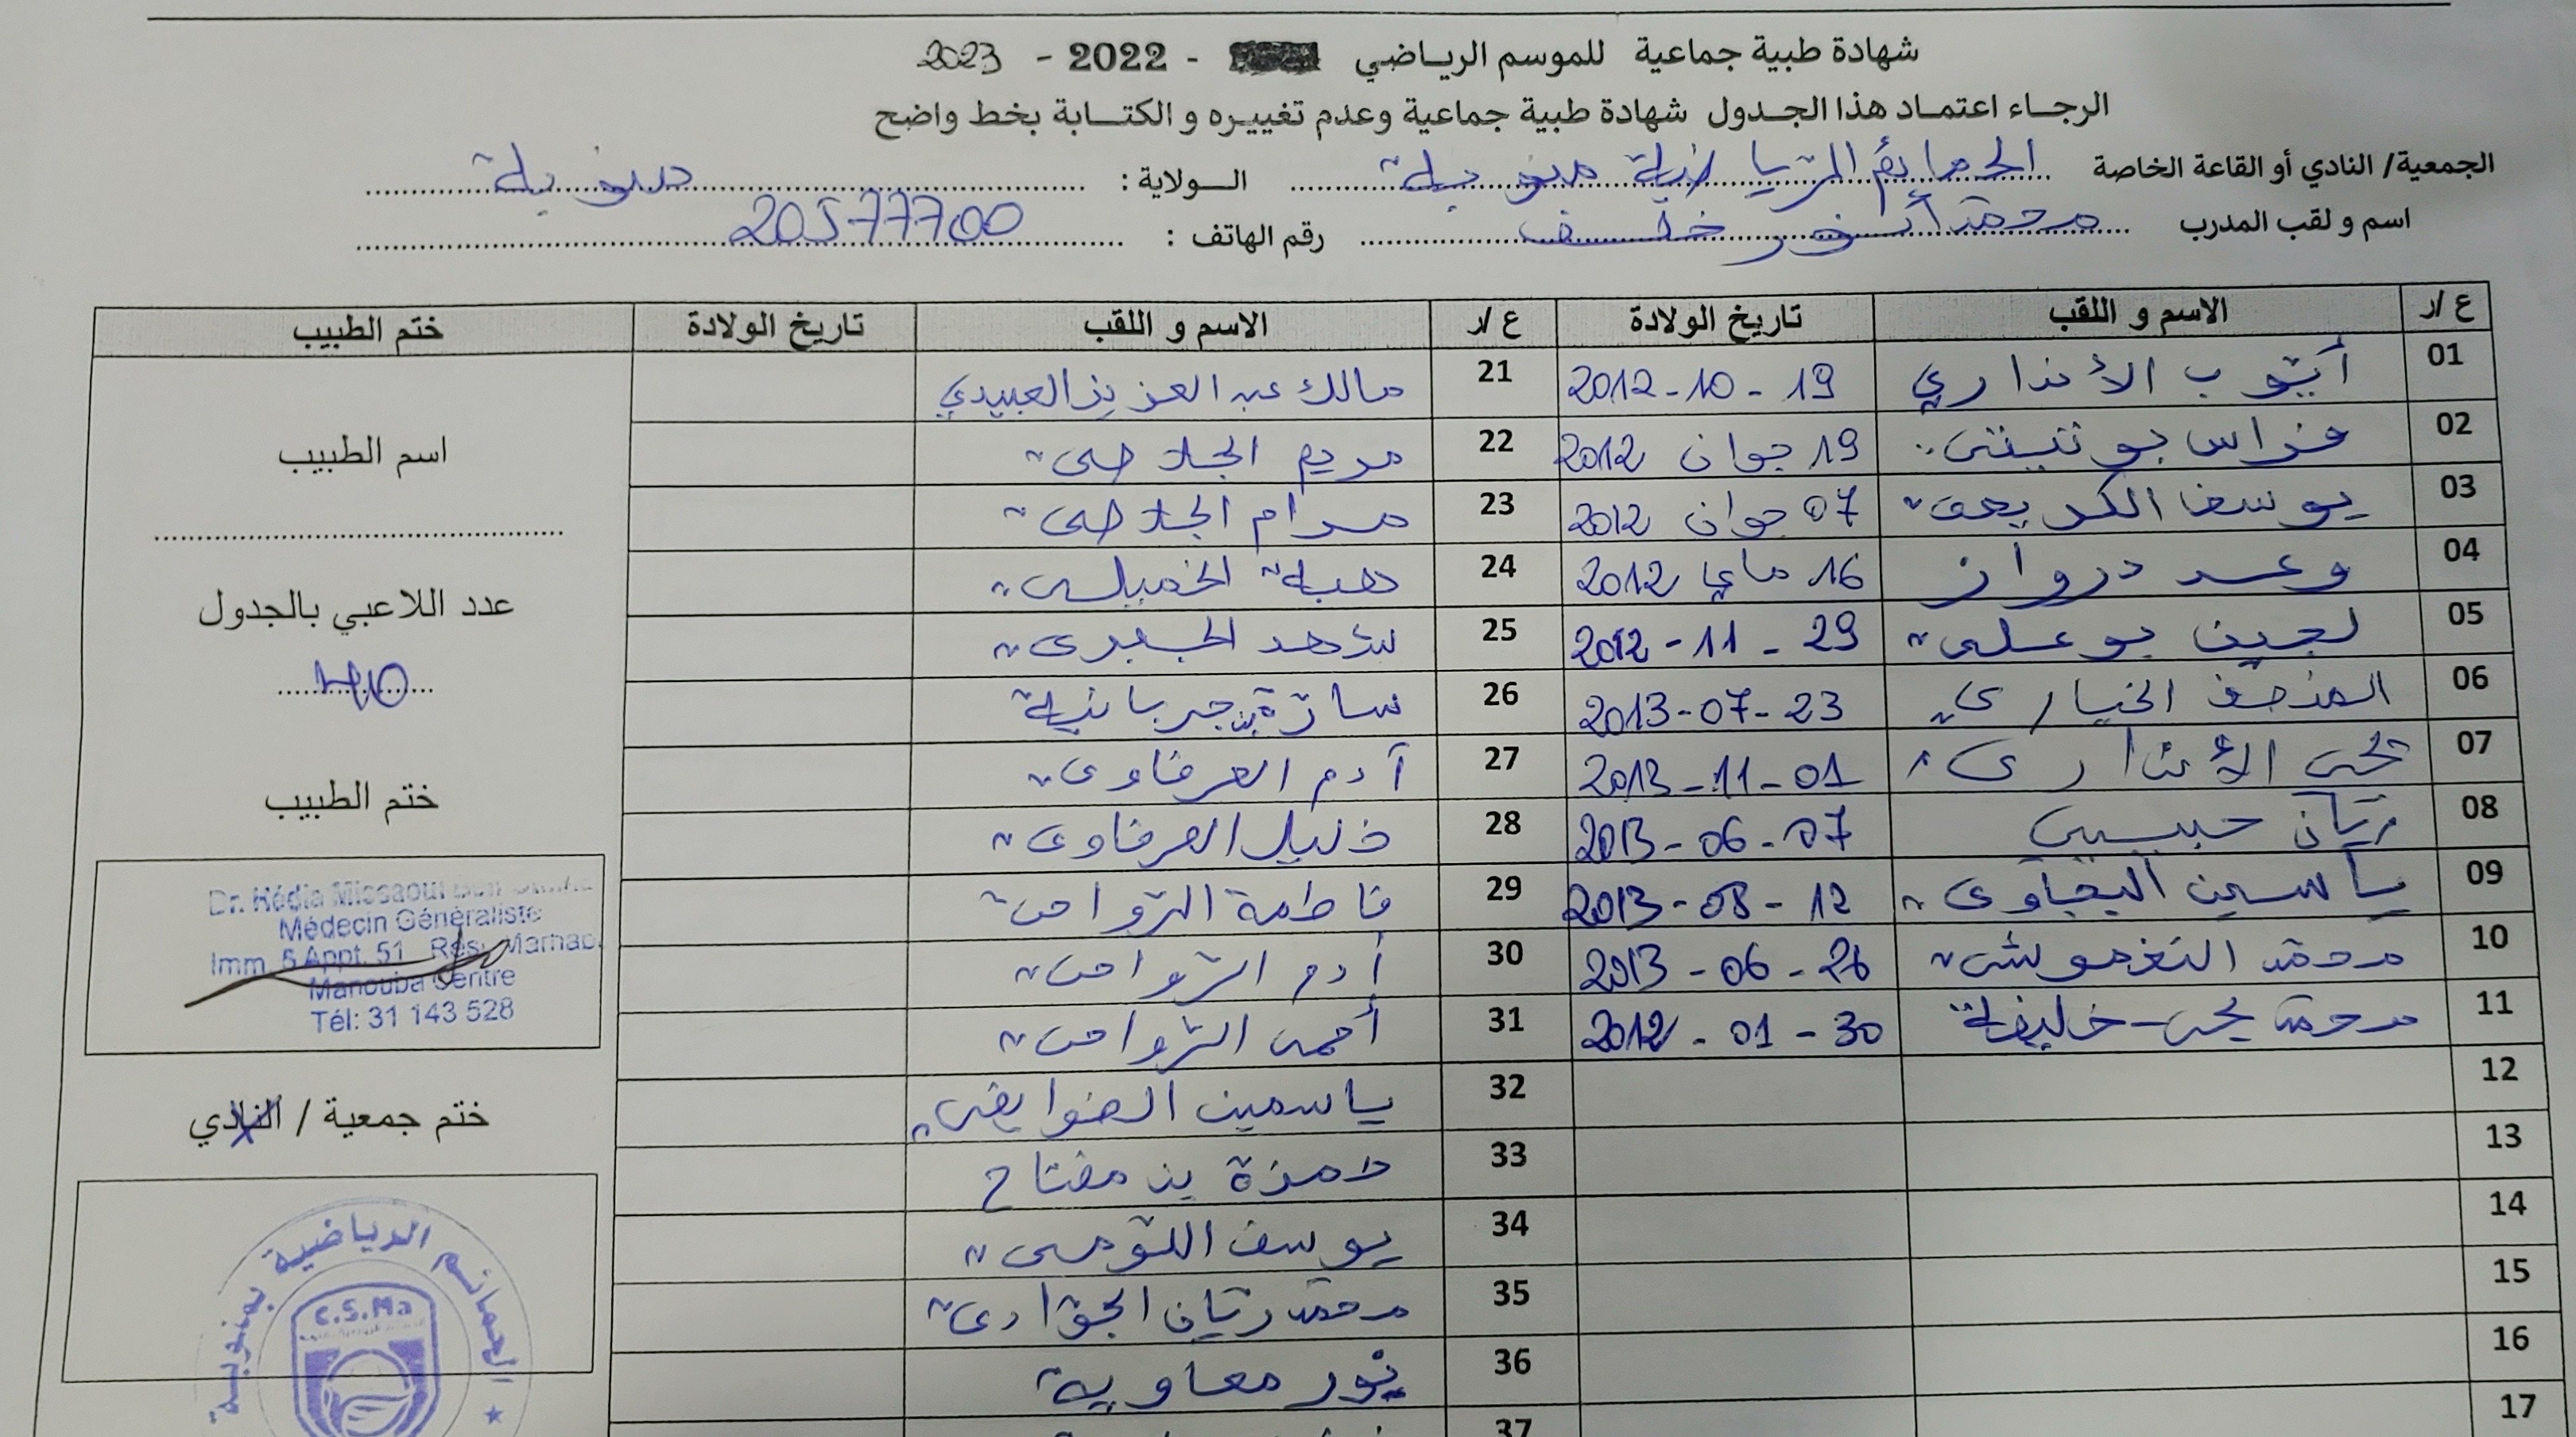 شهادة طبية جماعية للموسم الرياضي - 2022 - 2023
الرجاء اعتماد هذا الجدول شهادة طبية جماعية وعدم تغييره و الكتابة بخط واضح
الجمعية/ النادي أو القاعة الخاصة الحمائم الرياضية منوبة الولاية : منوبة
اسم و لقب المدرب محمد أنور خلف رقم الهاتف : 20577700
ع /ر الاسم و اللقب تاريخ الولادة ع /ر الاسم و اللقب تاريخ الولادة ختم الطبيب
01 أيوب الأنداري 19 - 10 - 2012 21 مالك عبد العزيز العبيدي
02 فراس 19 جوان 2012 22 مريم الجلاصي
03 يوسف 07 جوان 2012 23 مرام الجلاصي
04 وعد درواز 16 ماي 2012 24 هبة الخميلي
05 لجين بوعلي 29 - 11 - 2012 25 شهد الجبري
06 المنصف الخياري 23 - 07 - 2013 26 سارة جربانية
07 يحي الأنداري 01 - 11 - 2013 27 آدم العرفاوي
08 ريان حبيبي 07 - 06 - 2013 28 العرفاوي
09 ياسين اليحياوي 12 - 08 - 2013 29 فاطمة الزوامي
10 محمد النغموشي 26 - 06 - 2013 30 آدم الزوامي
11 محمد يحي خليفة 30 - 01 - 2012 31 أحمد الزوامي
12 32 ياسمين الضوايفي
13 33 حمزة بن مفتاح
14 34 يوسف التومي
15 35 محمد ريان الجوادي
16 36 نور معاوية
17 37
اسم الطبيب
عدد اللاعبي بالجدول
40
ختم الطبيب
Dr. Hédia Missaoui Ben
Médecin Généraliste
Imm. 5 Appt. 51 Rés.
Manouba Centre
Tél: 31 143 528
ختم جمعية / النادي
الحمائم الرياضية بمنوبة
C.S.Ma